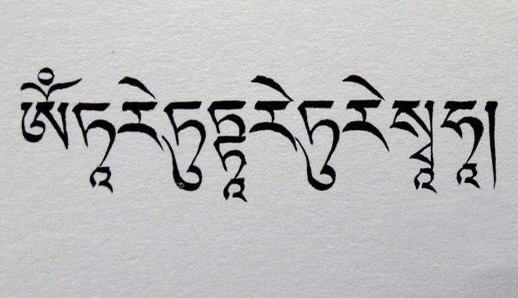 ཨོཾཏཱརེཏུཏྟཱརེཏུརེསྭཱཧཱ།